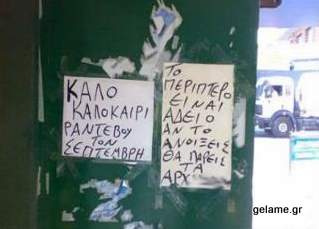 ΚΑΛΟ
ΚΑΛΟΚΑΙΡΙ
ΡΑΝΤΕΒΟΥ
ΤΟΝ
ΣΕΠΤΕΜΒΡΗ
ΤΟ
ΠΕΡΙΠΤΕΡΟ
ΕΙΝΑΙ
ΑΔΕΙΟ
ΑΝ ΤΟ
ΑΝΟΙΞΕΙΣ
ΘΑ ΠΑΡΕΙΣ
ΤΑ
ΑΡΧ
gelame.gr